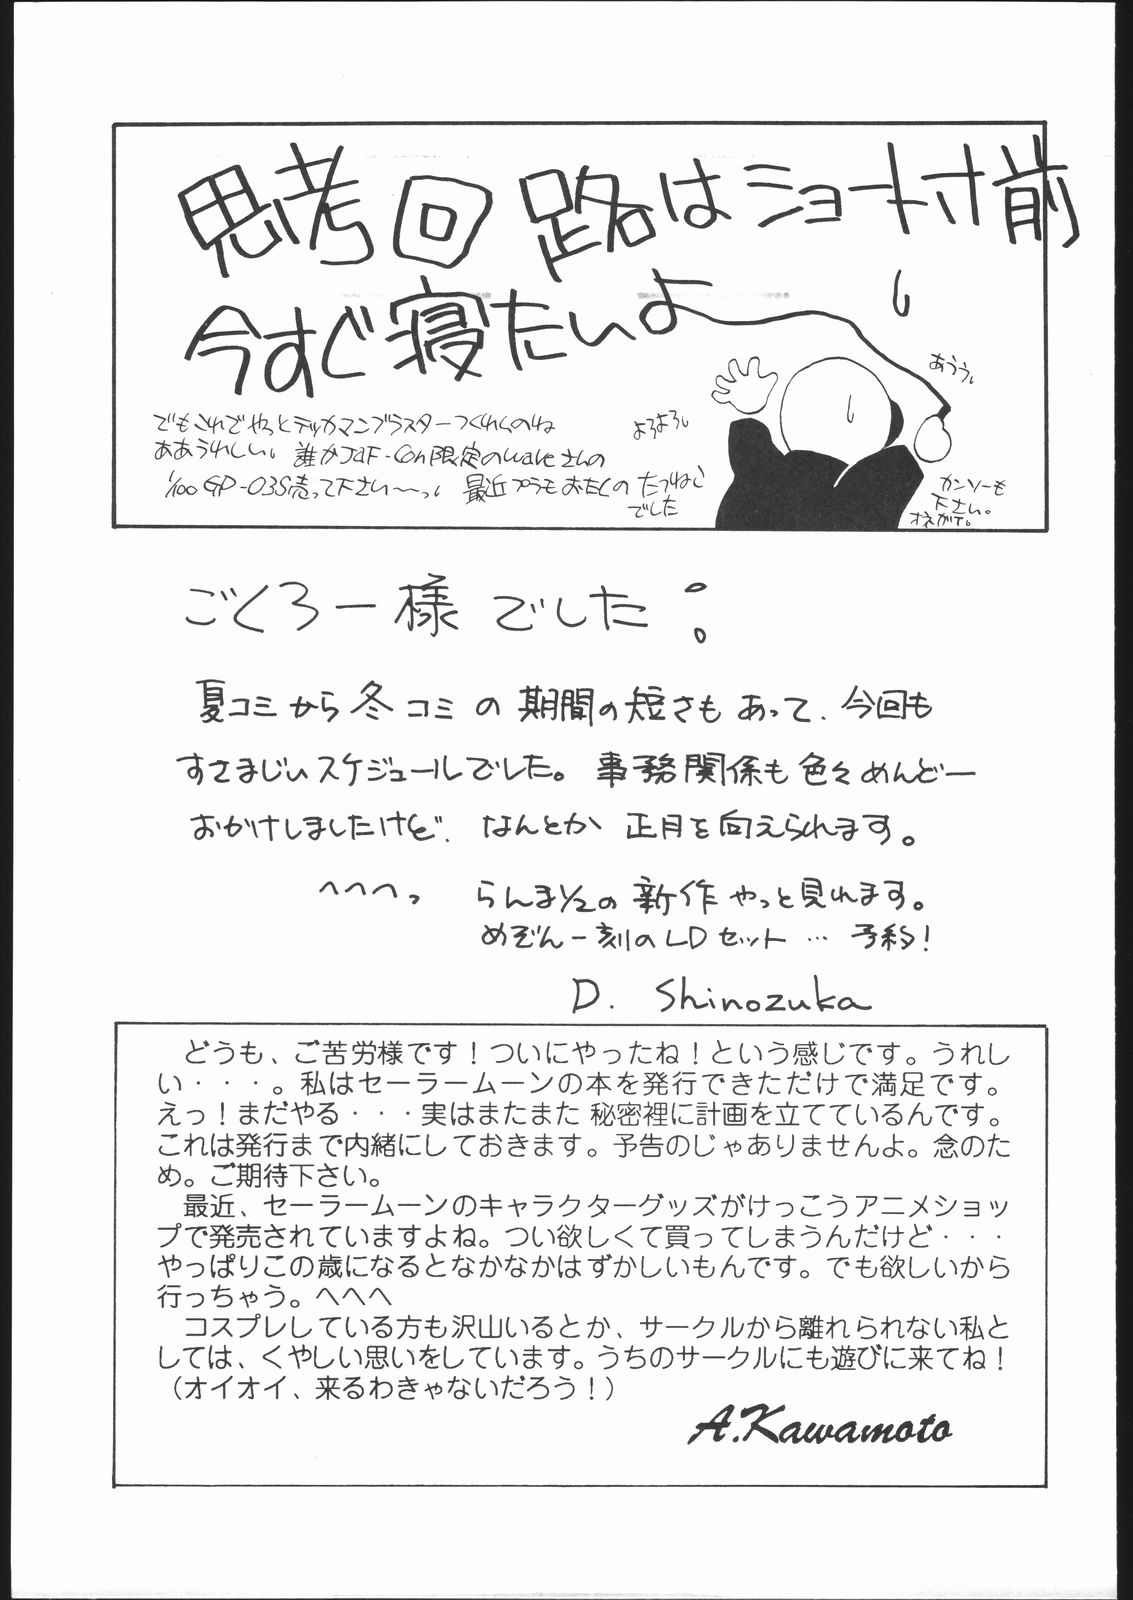 思考回路はショート寸前
今すぐ寝たいよ
あうう。
でもこれでやっとテッカマンブラスターつくれんのね
ああうれしい。誰かJAF-CON限定のwaveさんの
1/100 GP-03S売って下さい〜っ。最近プラモおたくの
よろよろ。
たつねじ
でした
カンソーも
下さい。
オネガイ。
ごくろー様でした!
夏コミから冬コミの期間の短さもあって、今回も
すさまじいスケジュールでした。事務関係も色々めんどー
おかけしましたけど、なんとか正月を向えられます。
へへへっ らんま1/2の新作やっと見れます。
めぞん一刻のLDセット…予約!
D. Shinozuka
どうも、ご苦労様です！ついにやったね！という感じです。うれし
い・・・。私はセーラームーンの本を発行できただけで満足です。
えっ！まだやる・・・実はまたまた秘密裡に計画を立てているんです。
これは発行まで内緒にしておきます。予告のじゃありませんよ。念のた
め。ご期待下さい。
最近、セーラームーンのキャラクターグッズがけっこうアニメショッ
プで発売されていますよね。つい欲しくて買ってしまうんだけど・・・
やっぱりこの歳になるとなかなかはずかしいもんです。でも欲しいから
行っちゃう。へへへ
コスプレしている方も沢山いるとか、サークルから離れられない私と
しては、くやしい思いをしています。うちのサークルにも遊びに来てね！
（オイオイ、来るわきゃないだろう！）
A.Kawamoto